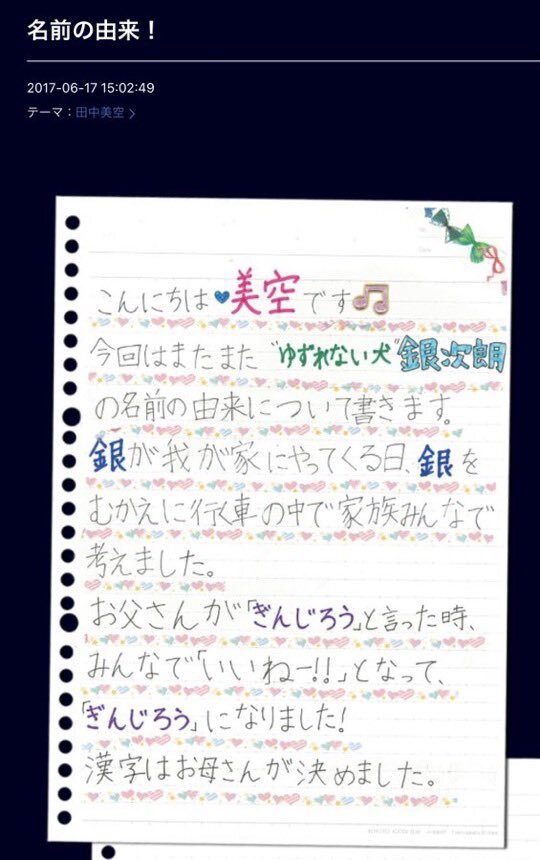 名前の由来！
2017-06-17 15:02:49
テーマ：田中美空
こんにちは💙美空です♫
今回はまたまた"ゆずれない犬"銀次朗
の名前の由来について書きます。
銀が我が家にやってくる日、銀を
むかえに行く車の中で家族みんなで
考えました。
お父さんが「ぎんじろう」と言った時、
みんなで「いいねー!!」となって、
「ぎんじろう」になりました!
漢字はお母さんが決めました。